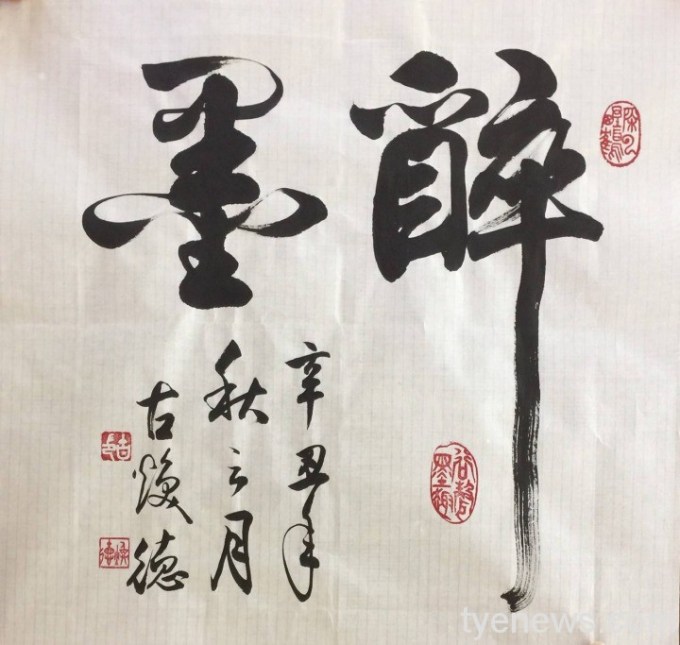 醉墨
辛丑年
秋之月
古煥德
tyenews